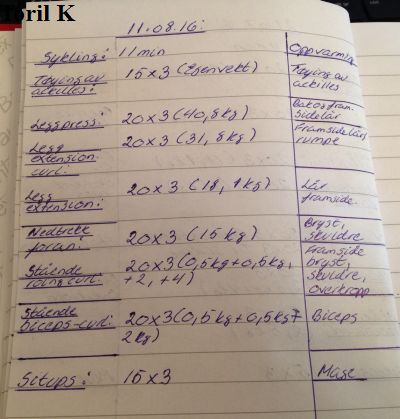 Toril K
11.08.16:
Sykling: 11 min Oppvarming
Tøying av 15x3 (Egenvekt) Tøying av
akilles: akilles
Leggpress: 20x3 (40,8kg) Bak og fram-
sidelår
Legg 20x3 (31,8kg) Framside lår/
extension rumpe
curl:
Legg 20x3 (18,1kg) Lår
extension: framside
Nedtrekk 20x3 (15kg) Bryst,
foran: skuldre
Stående 20x3 (0,5kg+0,5kg, Framside
curl: +2, +4) bryst,
skuldre,
overkropp
Stående 20x3 (0,5kg+0,5kg+ Biceps
biceps-curl: 2kg)
Situps: 15x3 Mage